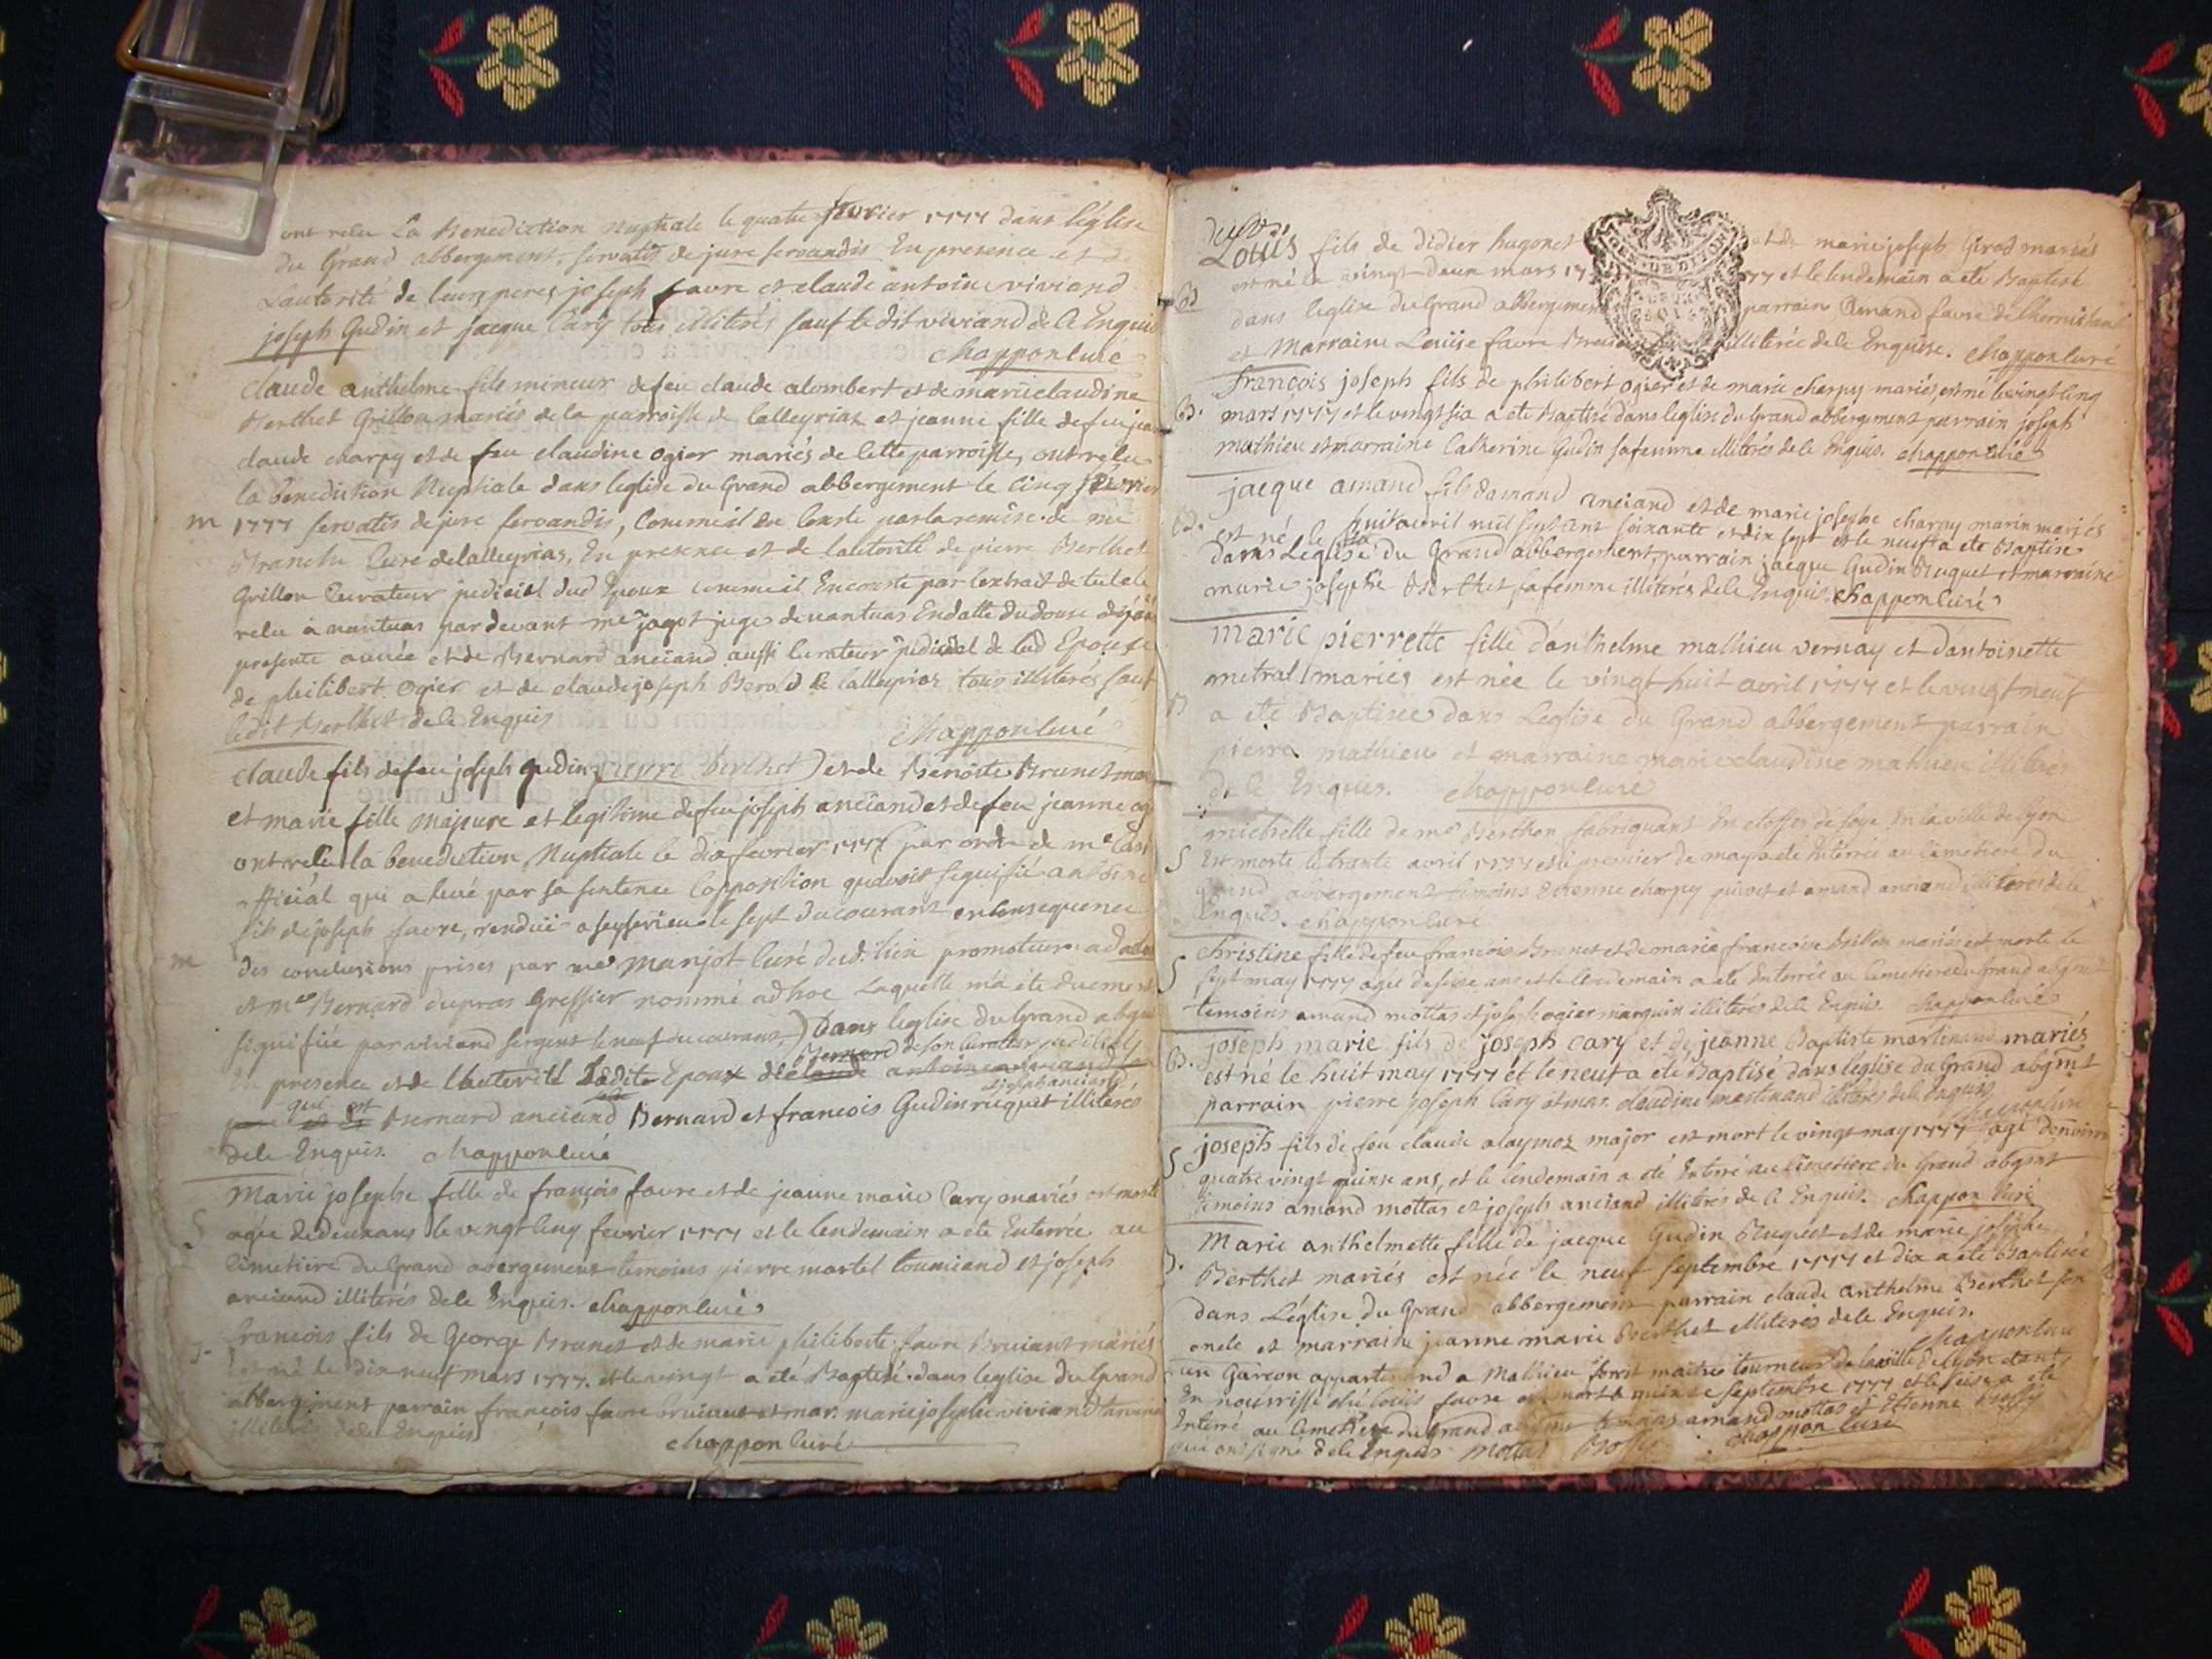 ont recu La Benediction nuptiale le quatre fevrier 1777 dans leglise
du Grand abbergement, servatis de jure servandis En presence et de
Lautorité de leurs peres joseph favre et claude antoine viviand
joseph Gudin et jacque Cary tous illiterés sauf le dit viviand de ce Enquis
chappon curé
claude anthelme fils mineur de feu claude alombert et de marie claudine
Berthet Grillon mariés de la parroisse de lalleyriaz et jeanne fille de feu jean
claude charpy et de feu claudine ogier mariés de cette parroisse, ont recu
la benediction Nuptiale dans leglise du Grand abbergement le cinq fevrier
m 1777 servatis de jure servandis, comme il en conste par la remise de me
curé de lalleyrias, En presence et de lautorité de pierre Berthet
Grillon curateur judiciel dud Epoux comme il En conste par lextrait de tutele
recu a nantuas par devant me jagot juge de nantuas En datte du douse
presente année et de Bernard anciand aussi curateur judiciel de lad Epouse
de philibert ogier et de claude joseph Berod de lalleyrias tous illiterés sauf
ledit Berthet de ce Enquis
chappon curé
claude fils de feu joseph gudin (pierre berthet) et de Benoite Brunet mariés
et marie fille majeure et legitime de feu joseph anciand et de feu jeanne
ont recu la benediction Nuptiale le dix fevrier 1777 (par ordre de mr
official qui a levé par sa sentence lopposition quavoit signifié antoine
fils de joseph favre, rendue a seyserieu le sept du courant en consequence
m des conclusions prises par me manjot curé dud. lieu promoteur ad
et me Bernard dupras Greffier nommé ad hoc Laquelle má eté duement
signifiée par viviand sergent le neuf du courant) Dans leglise du Grand abgmt
Bernard de son curateur judiciel
En presence et de lautorité Dudit Epoux de claude antoine viviand
joseph anciand
qui est
Bernard anciand Bernard et francois Gudin ruquet illiterés
de ce Enquis. chappon curé
Marie josephe fille de françois favre et de jeanne marie Cary mariés est morte
S agée de deux ans le vingt cinq fevrier 1777 et le lendemain a eté Enterrée au
Cimetiere du Grand abergement temoins pierre martel tourniand et joseph
anciand illiterés de ce Enquis. chappon curé
francois fils de George Brunet et de marie philiberte favre Bruiant mariés
est né le dix neuf mars 1777. et le vingt a eté Baptisé dans leglise du Grand
abbergement parrain francois favre bruiant et mar. marie josephe viviand
illiterés de ce Enquis
chappon curé
Louis fils de didier hugonet et de marie joseph Girod mariés
est né le vingt deux mars 1777 et le lendemain a eté Baptisé
B dans leglise du Grand abbergement parrain amand favre
et Marraine Louise favre illiterée de ce Enquise. chappon curé
francois joseph fils de philibert ogier et de marie charpy mariés, est né le vingt cinq
B. mars 1777 et le vingt six a eté Baptisé dans leglise du Grand abbergement parrain joseph
mathieu et marraine Catherine Gudin sa femme illiterés de ce Enquis. chappon curé
jacque amand fils damand anciand et de marie josephe charpy marin mariés
B. est né le huit avril mil sept cent soixante et dix sept et le neuf a eté Baptisé
dans Léglise du Grand abbergement, parrain jacque Gudin Ruquet et marraine
marie josephe Berthet sa femme illiterés de ce Enquis. chappon curé
marie pierrette fille danthelme mathieu vernay et dantoinette
metral mariés est née le vingt huit avril 1777 et le vingt neuf
B a eté Baptisée dans Leglise du Grand abbergement parrain
pierre mathieu et marraine marie claudine mathieu illiterés
de ce Enquis. chappon curé
michelle fille de mr Berthon fabriquant En etoffes de soye En la ville de lyon
S Est morte le trante avril 1777 et le premier de may a eté Enterrée au Cimetiere du
Grand abbergement temoins Etienne charpy et amand anciand illiterés de ce
Enquis. chappon curé
christine fille de feu francois Brunet et de marie francoise mariés est morte le
S sept may 1777 agée de seise ans et le lendemain a eté Enterrée au Cimetiere du Grand abgmt
temoins amand mottas et joseph ogier marquin illiterés de ce Enquis chappon curé
joseph marie fils de joseph cary et de jeanne Baptiste martinand mariés
B. est né le huit may 1777 et le neuf a eté Baptisé dans leglise du Grand abgmt
parrain pierre joseph Cary et mar. claudine martinand illiterés de ce Enquis
chappon curé
joseph fils de feu claude alaymoz major est mort le vingt may 1777 agé denviron
S quatre vingt quinse ans, et le lendemain a eté Enterré au Cimetiere du Grand abgmt
temoins amand mottas et joseph anciand illiterés de ce Enquis. chappon curé
Marie anthelmette fille de jacque Gudin Ruquet et de marie josephe
B. Berthet mariés est née le neuf septembre 1777 et dix a eté Baptisée
dans Léglise du Grand abbergement parrain claude anthelme Berthet son
oncle et marraine jeanne marie Berthet illiterés de ce Enquis.
chappon curé
un Garcon appartenand a Mathieu foret maitre tourneur de la ville de Lyon etant
En nourrisse ché Louis favre est mort le quinse septembre 1777 et le seise a eté
Enterré au Cimetiere du Grand abgmt temoins amand mottas et Etienne Bossy
qui ont signé de ce Enquis Mottas Bossy chappon curé